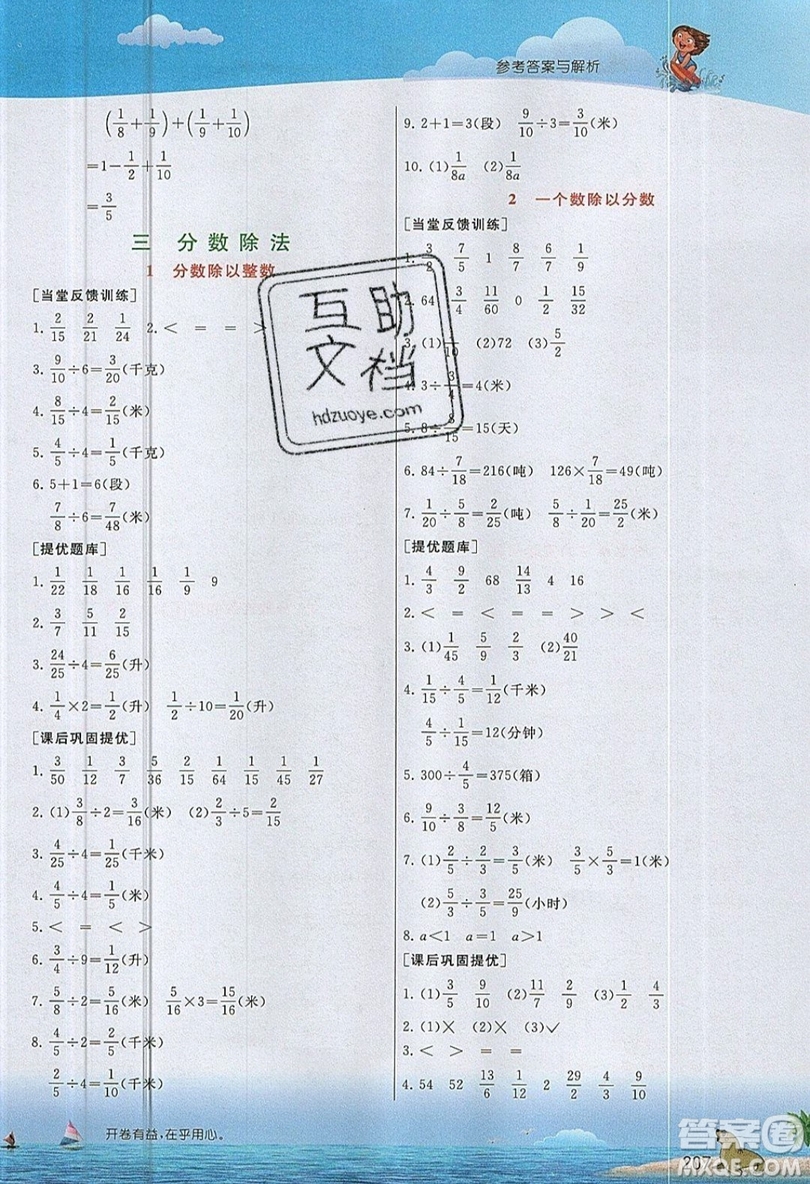 参考答案与解析
(1/8+1/9)+(1/9+1/10)
=1-1/2+1/10
=3/5
三 分数除法
1 分数除以整数
[当堂反馈训练]
1. 2/15 2/21 1/24 2. < = = >
3. 9/10÷6=3/20(千克)
4. 8/15÷4=2/15(米)
5. 4/5÷4=1/5(千克)
6. 5+1=6(段)
7/8÷6=7/48(米)
[提优题库]
1. 1/22 1/18 1/16 1/16 1/9 9
2. 3/7 5/11 2/15
3. 24/25÷4=6/25(升)
4. 1/4×2=1/2(升) 1/2÷10=1/20(升)
[课后巩固提优]
1. 3/50 1/12 3/7 5/36 2/15 1/64 1/15 1/45 1/27
2. (1)3/8÷2=3/16(米) (2)2/3÷5=2/15
3. 4/25÷4=1/25(千米)
4. 4/5÷4=1/5(米)
5. < = = < >
6. 3/4÷9=1/12(升)
7. 5/8÷2=5/16(米) 5/16×3=15/16(米)
8. 4/5÷2=2/5(千米)
4/5÷4=1/5(千米)
9. 2+1=3(段) 9/10÷3=3/10(米)
10. (1)1/8a (2)1/8a
2 一个数除以分数
[当堂反馈训练]
1. 3/2 7/5 1 8/7 6/7 1/9
2. 64 3/4 11/60 0 1/2 15/32
3. (1)/10 (2)72 (3)5/2
4. 3÷3/4=4(米)
5. 8÷8/15=15(天)
6. 84÷7/18=216(吨) 126×7/18=49(吨)
7. 1/20÷5/8=2/25(吨) 5/8÷1/20=25/2(米)
[提优题库]
1. 4/3 9/2 68 14/13 4 16
2. < = < = = > > <
3. (1)1/45 5/9 2/3 (2)40/21
4. 1/15÷4/5=1/12(千米)
4/5÷1/15=12(分钟)
5. 300÷4/5=375(箱)
6. 9/10÷3/8=12/5(米)
7. (1)2/5÷2/3=3/5(米) 3/5×5/3=1(米)
(2)5/3÷3/5=25/9(小时)
8. a<1 a=1 a>1
[课后巩固提优]
1. (1)3/5 9/10 (2)11/7 2/9 (3)1/2 4/3
2. (1)× (2)× (3)✓
3. < > = =
4. 54 52 13/6 1/12 2 29/2 4/3 9/10
互助
文档
hdzuoye.com
开卷有益,在乎用心。
207
答案圈
MXQE.COM